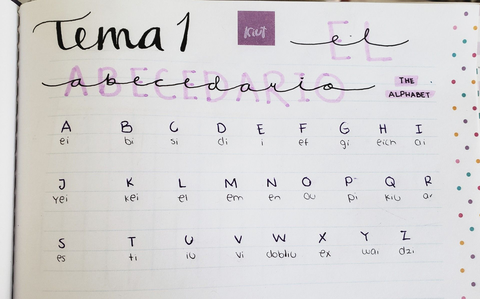 Tema 1
kiut
el
EL
abecedario
ABECEDARIO
THE
ALPHABET
A B C D E F G H I
ei bi si di i ef gi eich ai
J K L M N O P Q R
yei kei el em en ou pi kiu ar
S T U V W X Y Z
es ti iu vi dobliu ex wai dzi